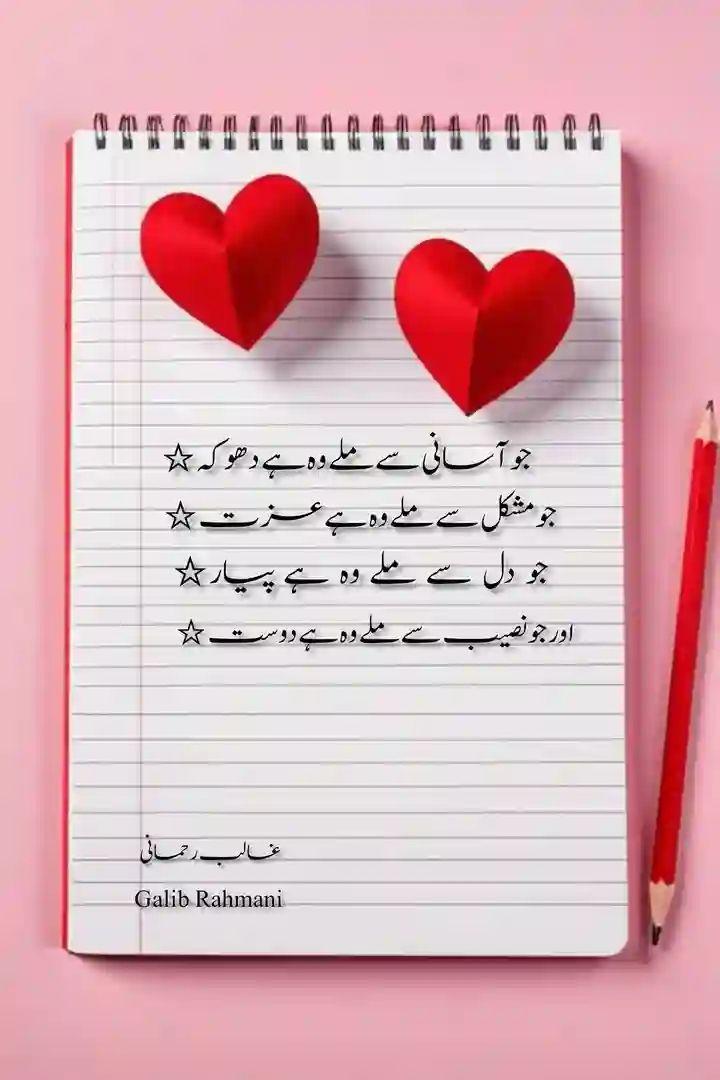 جو آسانی سے ملے وہ ہے دھوکہ ☆
جو مشکل سے ملے وہ ہے عزت ☆
جو دل سے ملے وہ ہے پیار ☆
اور جو نصیب سے ملے وہ ہے دوست ☆
غالب رحمانی
Galib Rahmani